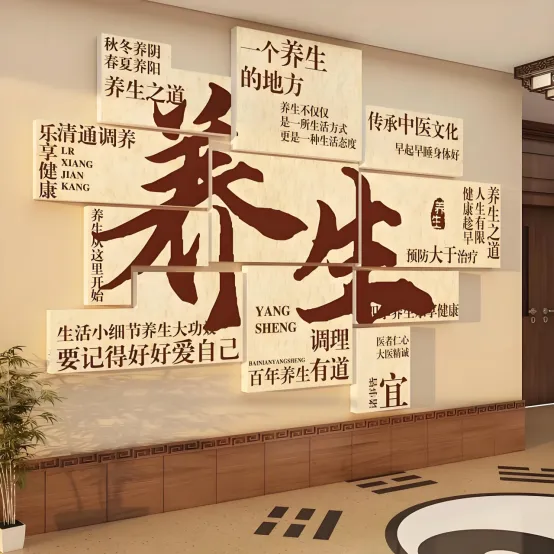 秋冬养阴
春夏养阳
养生之道
一个养生
的地方
养生不仅仅
是一所生活方式
更是一种生活态度
传承中医文化
早起早睡身体好
清通调养
乐享健康
LR
XIANG
JIAN
KANG
养生
养生从这里开始
养生
养生之道
人生有限
健康趁早
预防大于治疗
生活小细节养生大功效
要记得好好爱自己
YANG
SHENG
调理
BAINIANYANGSHENG
百年养生有道
享健康
医者仁心
大医精诚
宜